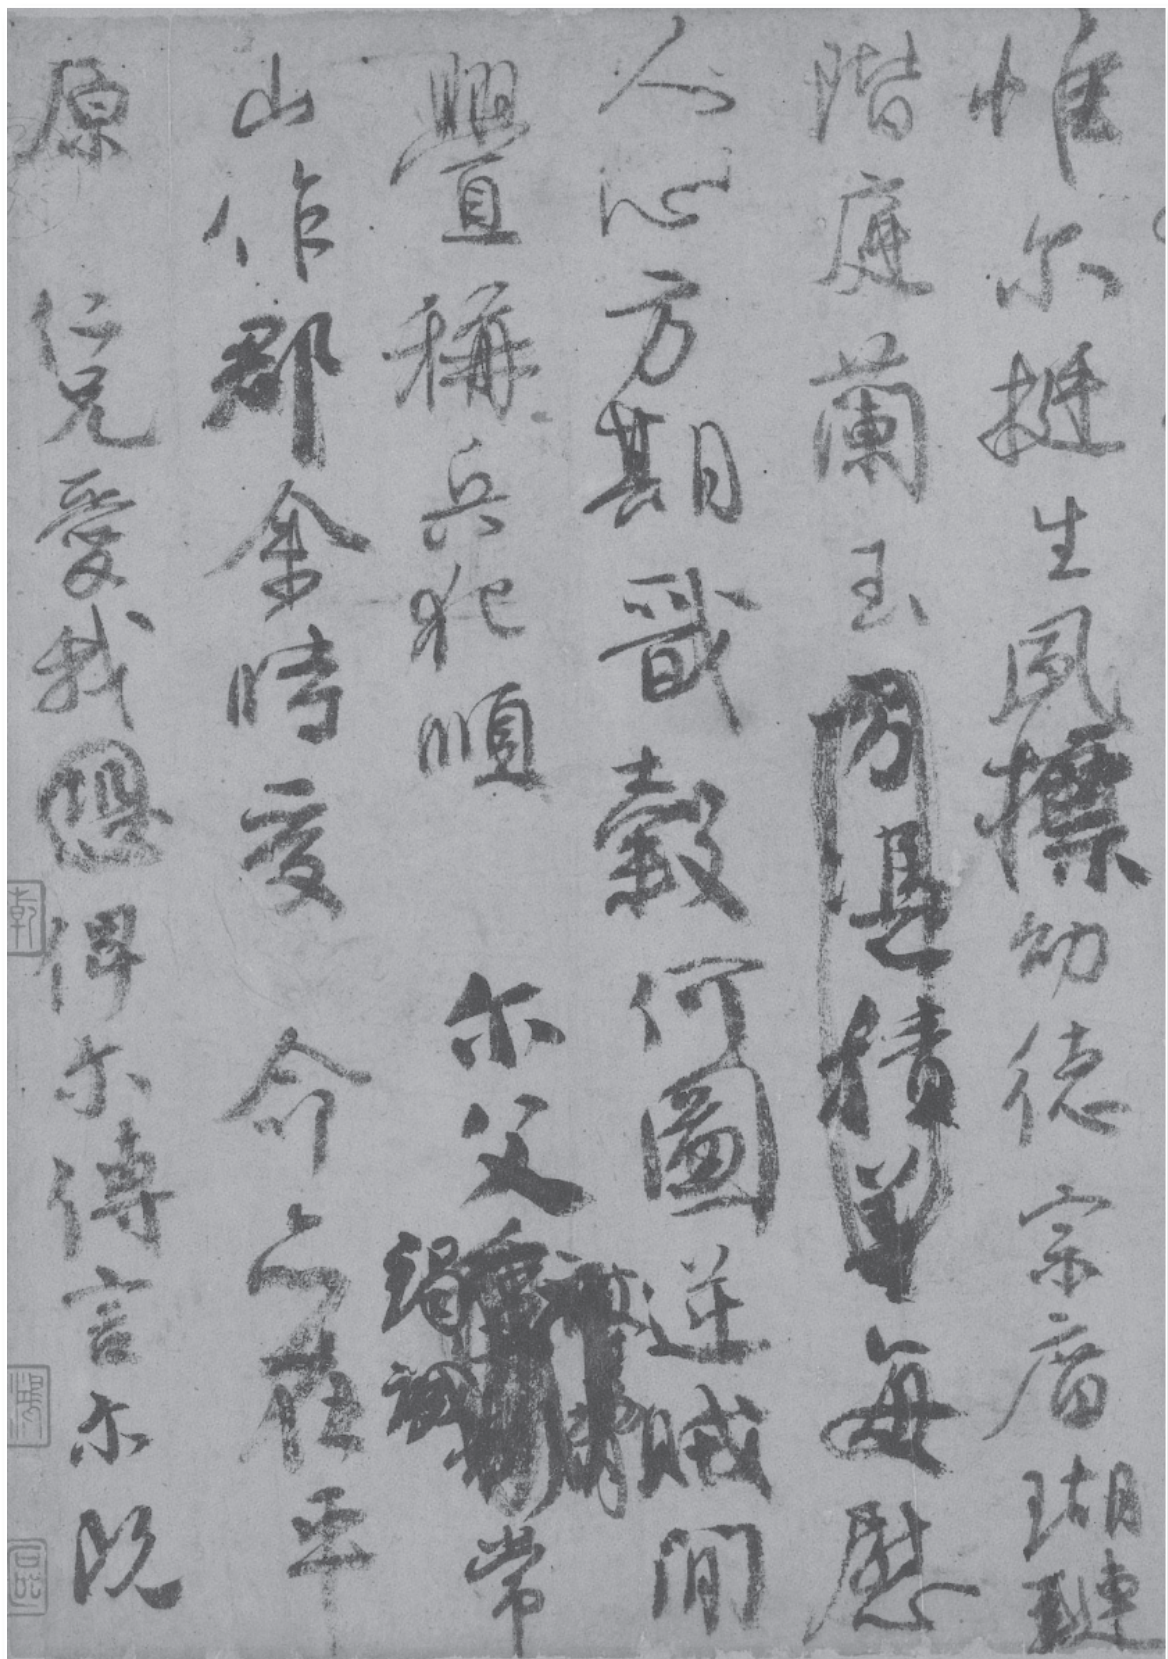 惟尔挺生夙標幼德宗廟瑚璉
階庭蘭玉方憑積善每慰
人心方期戩穀何圖逆賊閒
舋稱兵犯順尔父竭誠常
山作郡余時受命亦在平
原仁兄愛我恐俾尔傳言尔既